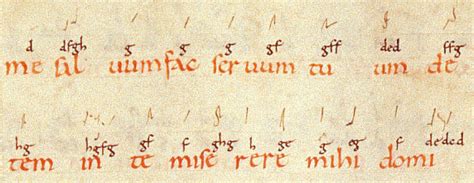 d dfgh g g g gf gff ded ffg
me sal uum fac ser uum tu um de
hg hgfg gf f ghg h g ge eg f deded
tem in te mise rere mihi domi